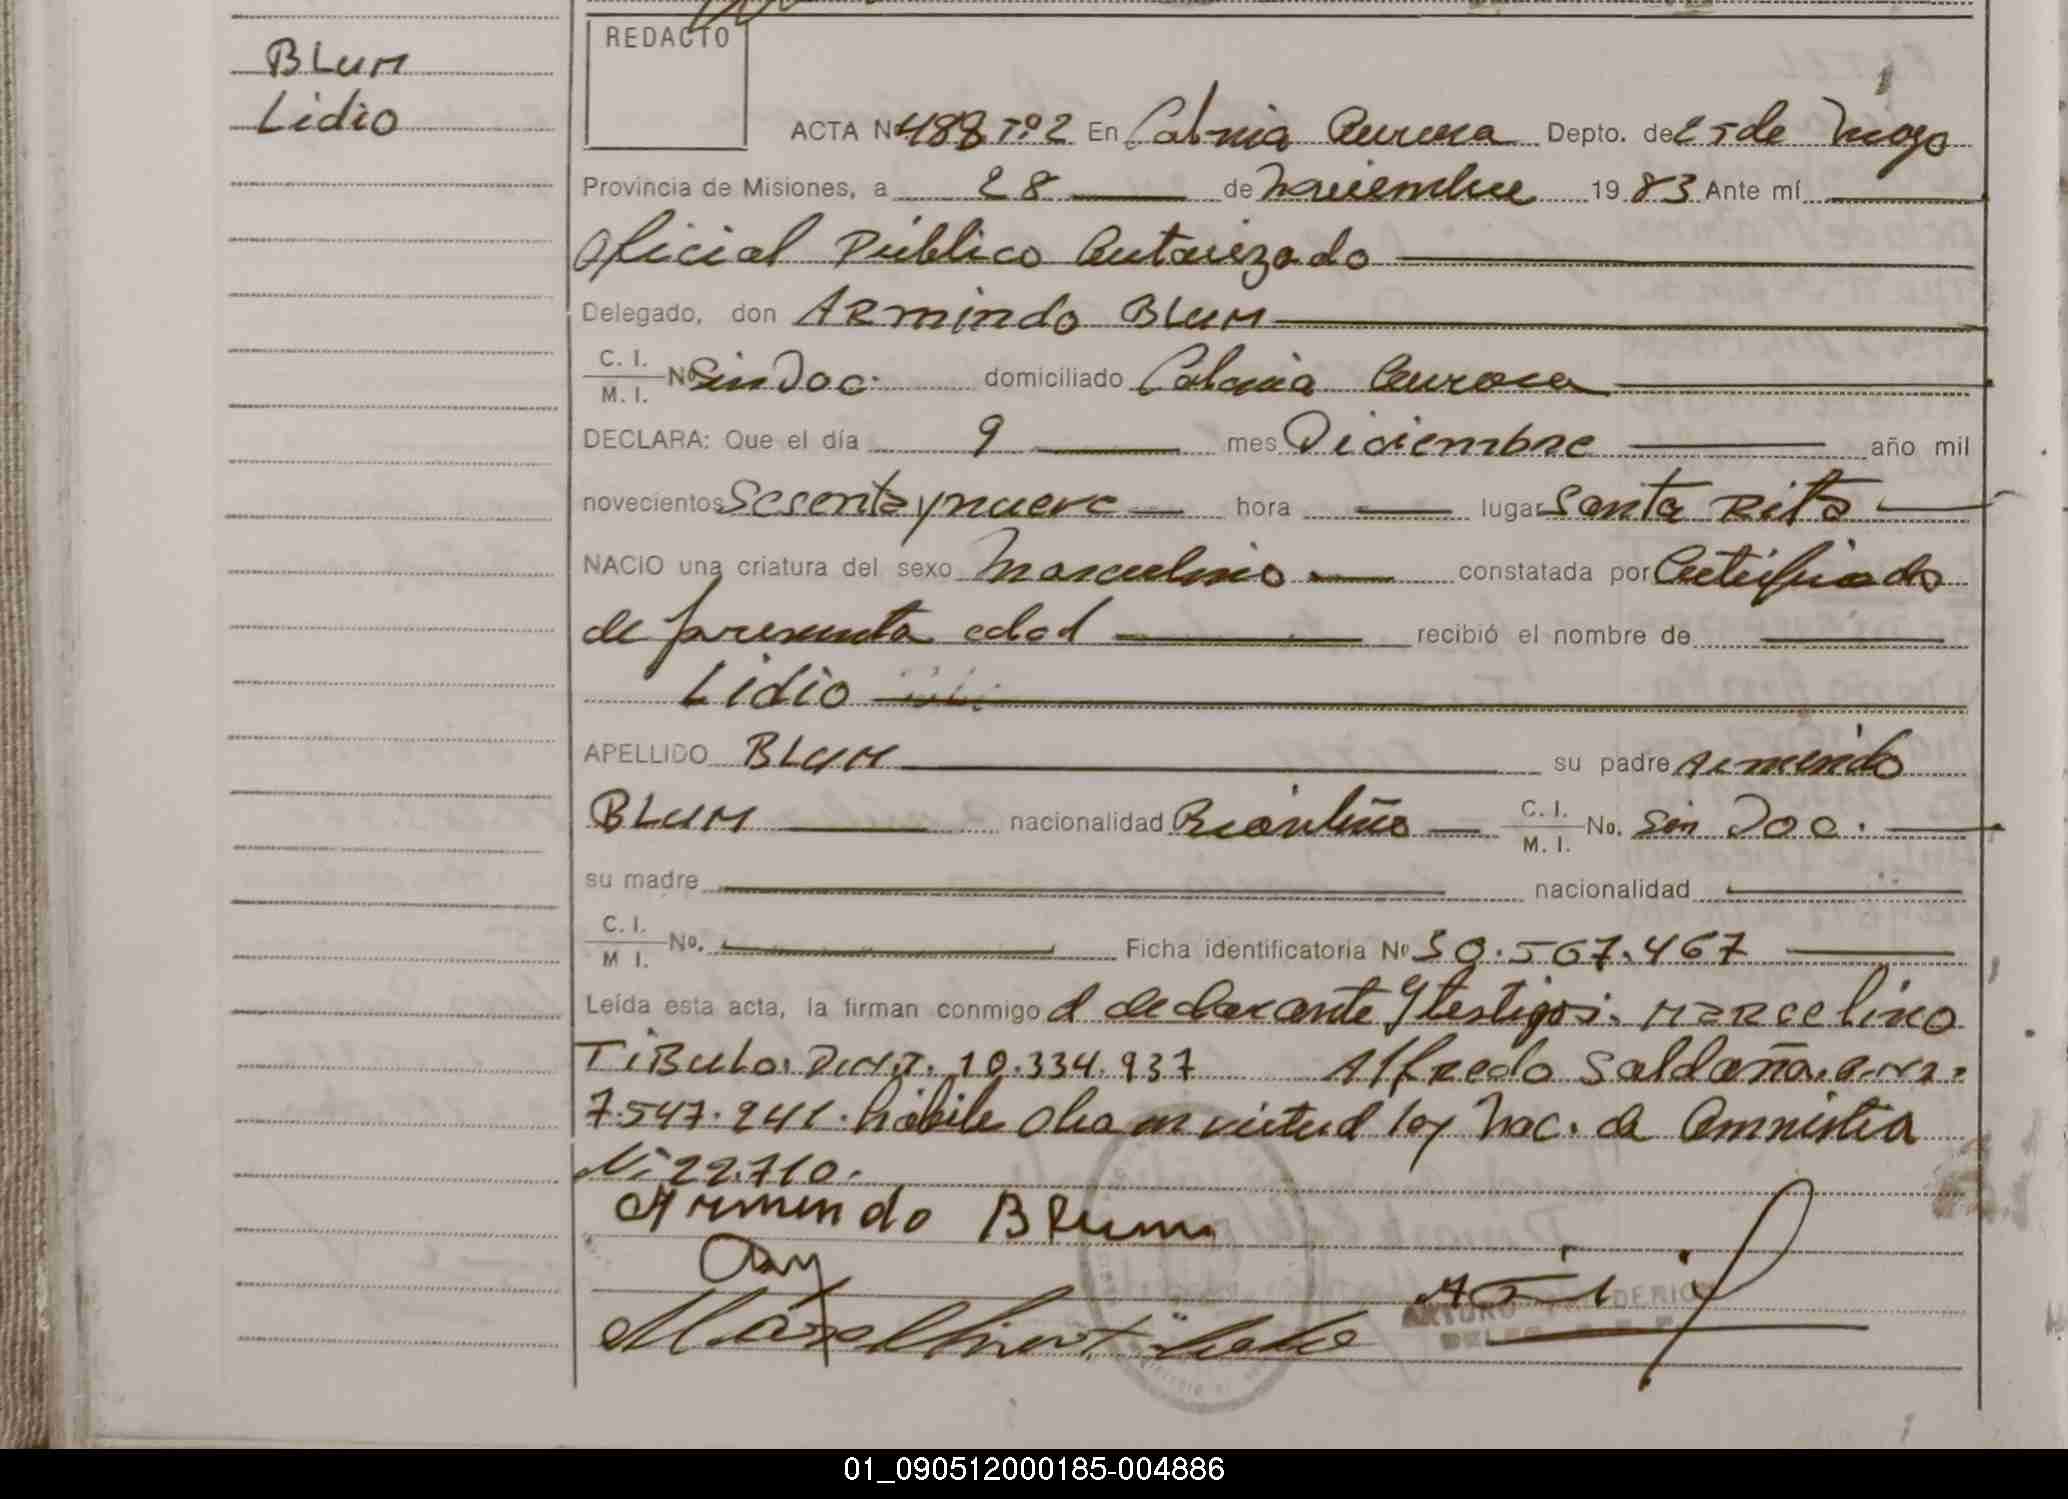 BLUM
Lidio
REDACTO
ACTA Nº 488 Tº 2 En Colonia Aurora Depto. de 25 de Mayo
Provincia de Misiones, a 28 de Noviembre 1983 Ante mí
Oficial Público Autorizado
Delegado, don ARmindo BLUM
C. I. M. I. Nº Sin Doc. domiciliado Colonia Aurora
DECLARA: Que el día 9 mes Diciembre año mil
novecientos Sesenta y nueve hora lugar Santa Rita
NACIO una criatura del sexo Masculino constatada por Certificado
de presunta edad recibió el nombre de
Lidio
APELLIDO BLUM su padre Armindo
BLUM nacionalidad Brasileño C. I. M. I. No. Sin Doc.
su madre nacionalidad
C. I. M I. No. Ficha identificatoria Nº 30.567.467
Leída esta acta, la firman conmigo el declarante y testigos: MARcelino
TiBulo. D.N.I. 10.334.937 Alfredo Saldaña. D.N.I.
7.547.241. hábile en virtud ley Nac. de Amnistia
Nº 22.710.
Armindo Blum
ARTURO
01_090512000185-004886